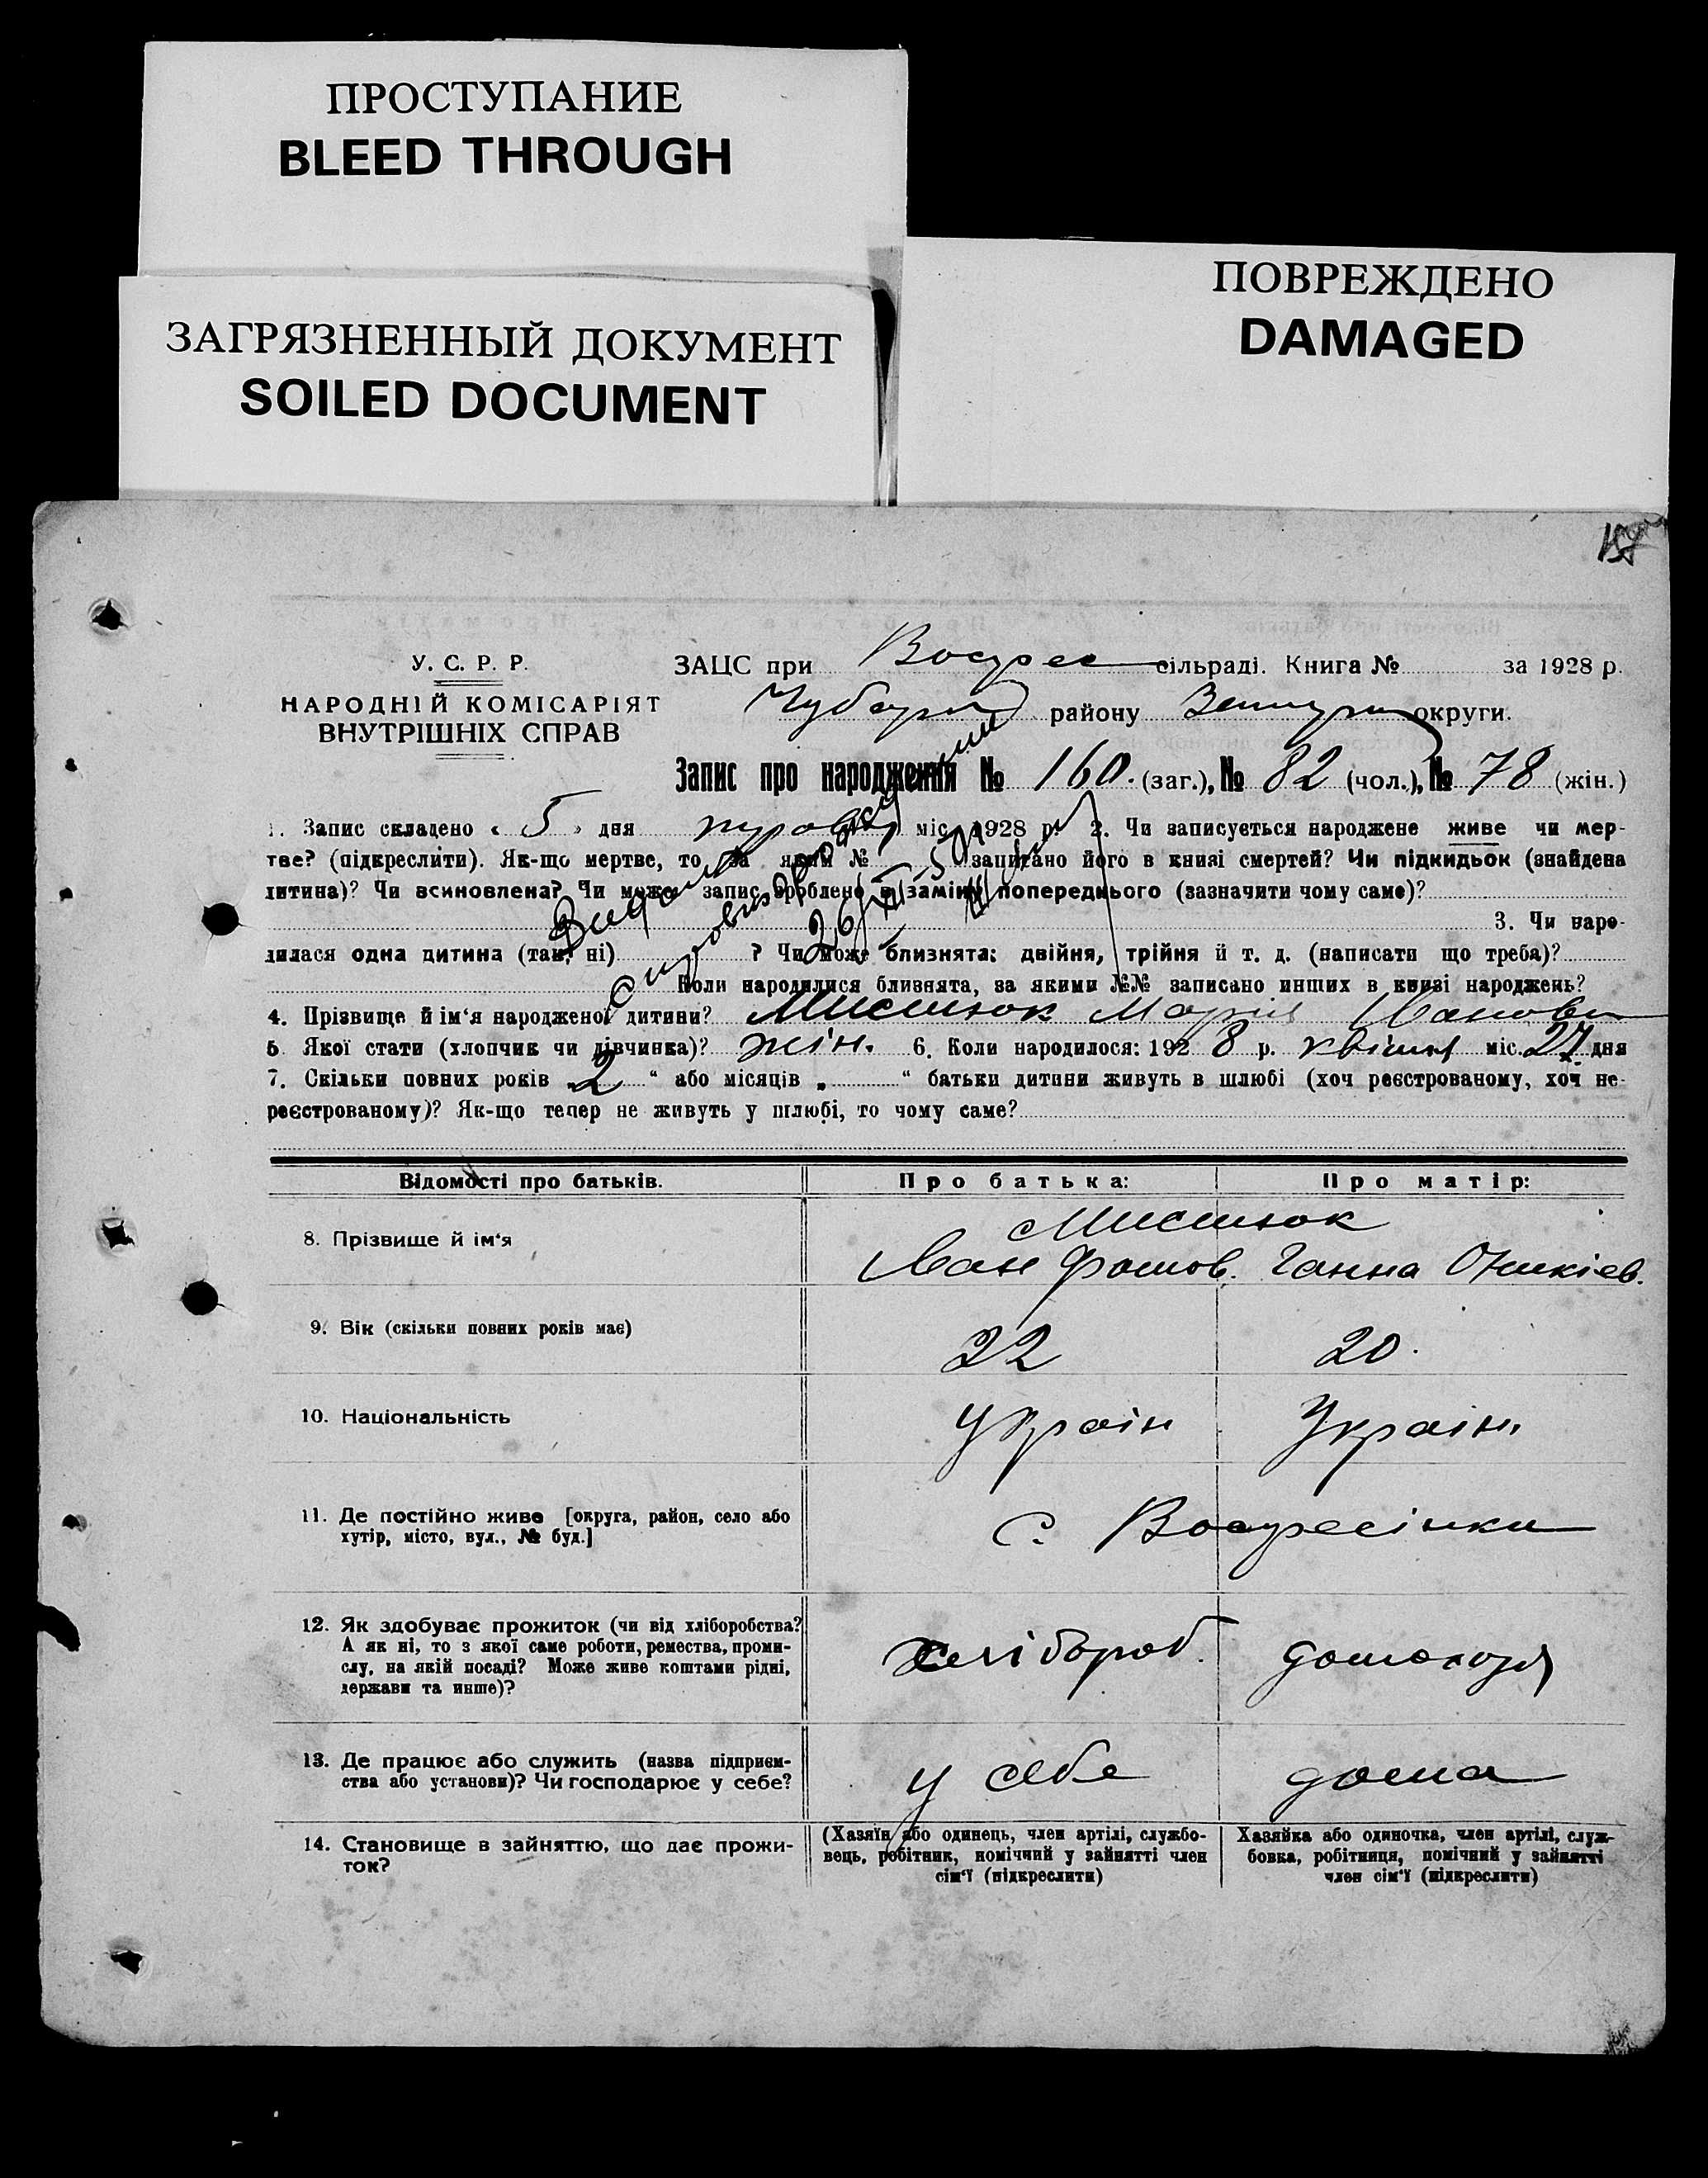 ПРОСТУПАНИЕ
BLEED THROUGH
ЗАГРЯЗНЕННЫЙ ДОКУМЕНТ
SOILED DOCUMENT
ПОВРЕЖДЕНО
DAMAGED
У. С. Р. Р.
НАРОДНІЙ КОМІСАРІЯТ
ВНУТРІШНІХ СПРАВ
ЗАЦС при Воскрес сільраді. Книга № за 1928 р.
Чубар району округи.
Запис про народження № 160. (заг.), № 82 (чол.), № 78 (жін.)
1. Запис складено « 5 » дня міс. 1928 р. 2. Чи записується народжене живе чи мер-
тве? (підкреслити). Як-що мертве, то за яким № записано його в книзі смертей? Чи підкидьок (знайдена
дитина)? Чи всиновлена? Чи може запис зроблено в заміну попереднього (зазначити чому саме)?
3. Чи наро-
дилася одна дитина (так, ні) ? Чи може близнята: двійня, трійня й т. д. (написати що треба)?
Коли народилися близнята, за якими №№ записано инших в книзі народжень?
4. Прізвище й ім‘я народженої дитини? Мисизок Марія Івановн
5. Якої стати (хлопчик чи дівчинка)? жін. 6. Коли народилося: 192 8 р. квітня міс. 27 дня
7. Скільки повних років „ 2 “ або місяців „ “ батьки дитини живуть в шлюбі (хоч реєстрованому, хоч не-
реєстрованому)? Як-що тепер не живуть у шлюбі, то чому саме?
Відомості про батьків. Про батька: Про матір:
8. Прізвище й ім‘я
Мисизок
Іван Фомов. Ганна Оникіев.
9. Вік (скільки повних років має)
22 20.
10. Національність
Україн Україн.
11. Де постійно живе [округа, район, село або
хутір, місто, вул., № буд.]
с. Воскресінки
12. Як здобуває прожиток (чи від хліборобства?
А як ні, то з якої саме роботи, ремества, проми-
слу, на якій посаді? Може живе коштами рідні,
держави та инше)?
хлібороб. домохозя
13. Де працює або служить (назва підприєм-
ства або установи)? Чи господарює у себе?
у себе дома
14. Становище в зайняттю, що дає прожи-
ток?
(Хазяїн або одинець, член артілі, службо-
вець, робітник, помічний у зайнятті член
сім‘ї (підкреслити)
Хазяйка або одиночка, член артілі, служ-
бовка, робітниця, помічний у зайнятті
член сім‘ї (підкреслити)